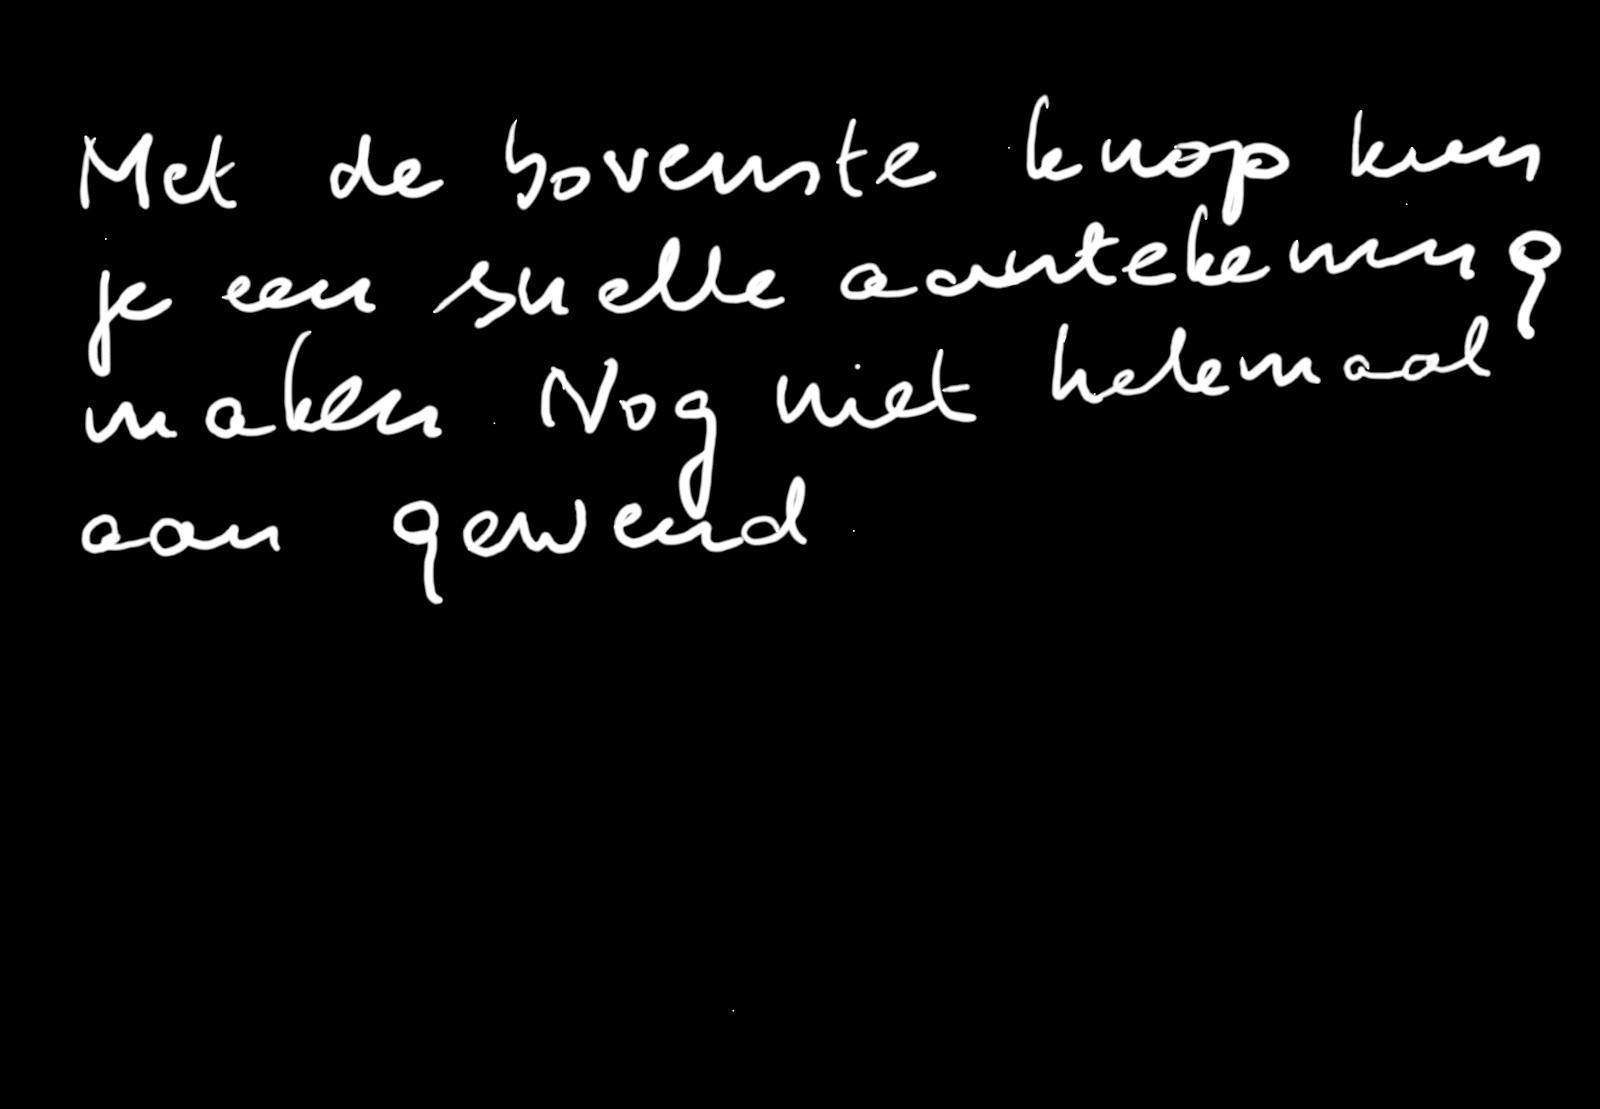 Met de bovenste knop kun
je een snelle aantekening
maken. Nog niet helemaal
aan gewend.